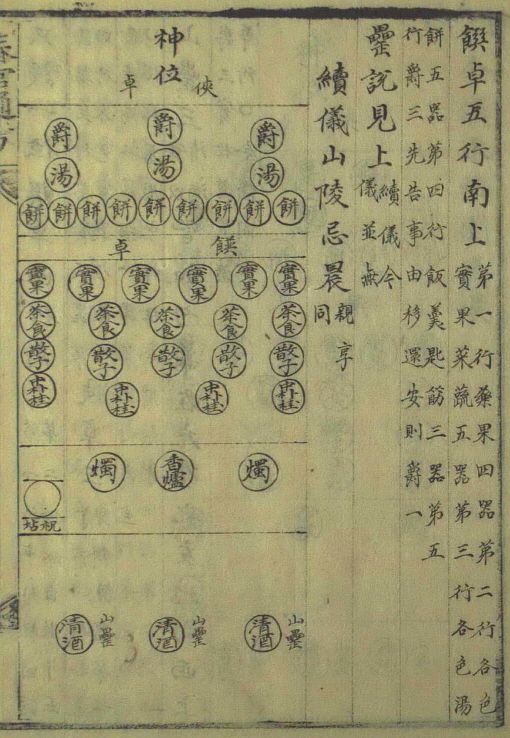 饌卓五行南上第一行藥果四器第二行各色
實果菜蔬五器第三行各色湯
餅五器第四行飯羹匙筯三器第五
行爵三先告事由移還安則爵一
罍說見上續儀今
儀並無
續儀山陵忌晨親享
同
神位
俠卓
爵 爵 爵
湯 湯 湯
餠 餠 餠 餠 餠 餠 餠 餠 餠
饌卓
實果 實果 實果 實果 實果 實果
茶食 茶食 茶食 茶食 茶食
散子 散子 散子 散子 散子
中朴桂 中朴桂 中朴桂 中朴桂
燭 香爐 燭
祝坫
山罍 山罍 山罍
清酒 清酒 清酒
3